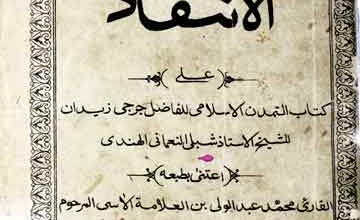 الانتقاد
على
كتاب التمدن الاسلامي للفاضل جرجي زيدان
للشيخ الاستاذ شبلي النعماني الهندي
اعتنى بطبعه
القارئ محمد عبد الولي بن العلامة الآسى المرحوم